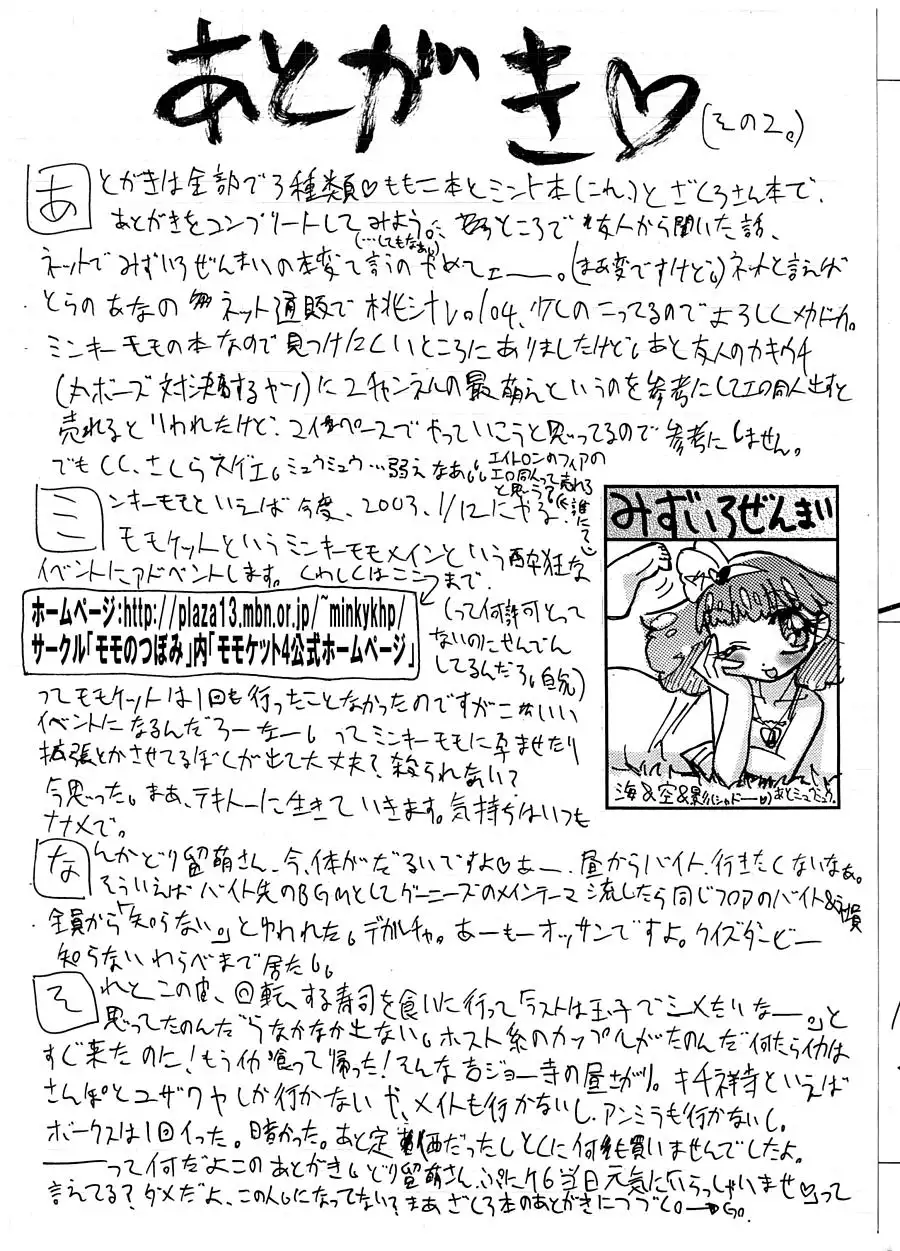 あとがき♡
(その2。)
あとがきは全部で3種類♡ももこ本とミント本(これ。)とざくろさん本で、
あとがきをコンプリートしてみよう。ところで友人から聞いた話、
(…してもなあ)
ネットでみずいろぜんまいの本変て言うのやめてェー。(まあ変ですけど。)ネットと言えば
とらのあなのネット通販で桃汁Vol04、少しのこってるのでよろしくメカドック。
ミンキーモモの本なので見つけにくいところにありましたけど。あと友人のカキウチ
に2チャンネルの最萌えというのを参考にしてエロ同人出すと
売れるといわれたけど、マイペースでやっていこうと思ってるので参考にしません。
でもCC、さくらスゲェ。ミュウミュウ…弱えなあ。
エイトロンのフィアの
エロ同人って売れる
と思う?
ミンキーモモといえば今度、2003、1/12にやる
モモケットというミンキーモモメインという酔狂な
イベントにアドベントします。くわしくはここまで。
ホームページ:http://plaza13.mbn.or.jp/~minkykhp/
サークル「モモのつぼみ」内「モモケット4公式ホームページ」
(って何許可とって
ないのにせんでん
してるんだろ。自分)
ってモモケットは1回も行ったことなかったのですが
イベントになるんだろーなー。ってミンキーモモに孕ませたり
拡張とかさせてるぼくが出て大丈夫?殺られない?
今思った。まあ、テキトーに生きていきます。気持ちはいつも
ナナメで。
みずいろぜんまい
海&空&影(シャドー)あとミュウミュウ。
なんかどり留萌さん、今、体がだるいですよ♡あー、昼からバイト行きたくないなぁ。
そういえばバイト先のBGMとしてグーニーズのメインテーマ流したら同じフロアのバイト&社員
全員から「知らない。」とゆわれた。デカルチャ。あーもーオッサンですよ。クイズダービー
知らないわらべまで居た。
それとこの間、回転する寿司を食いに行って「ラストは玉子でシメたいなー。」と
思ってたのんだらなかなか出ない。ホスト系のカップルがたのんだ何たらイカは
すぐ来たのに!もうイカ喰って帰った!そんな吉ジョー寺の昼下がり。キチ祥寺といえば
さんぽとユザワヤしか行かないや、メイトも行かないし、アンミラも行かないし。
ボークスは1回イった。暗かった。あと定価だったしとくに何も買いませんでしたよ。
――って何だよこのあとがき。どり留萌さん、ぷにケ6当日元気にいらっしゃいませ♡って
言えてる?ダメだよ、この人。になってない?まあざくろ本のあとがきにつづく。→Go.